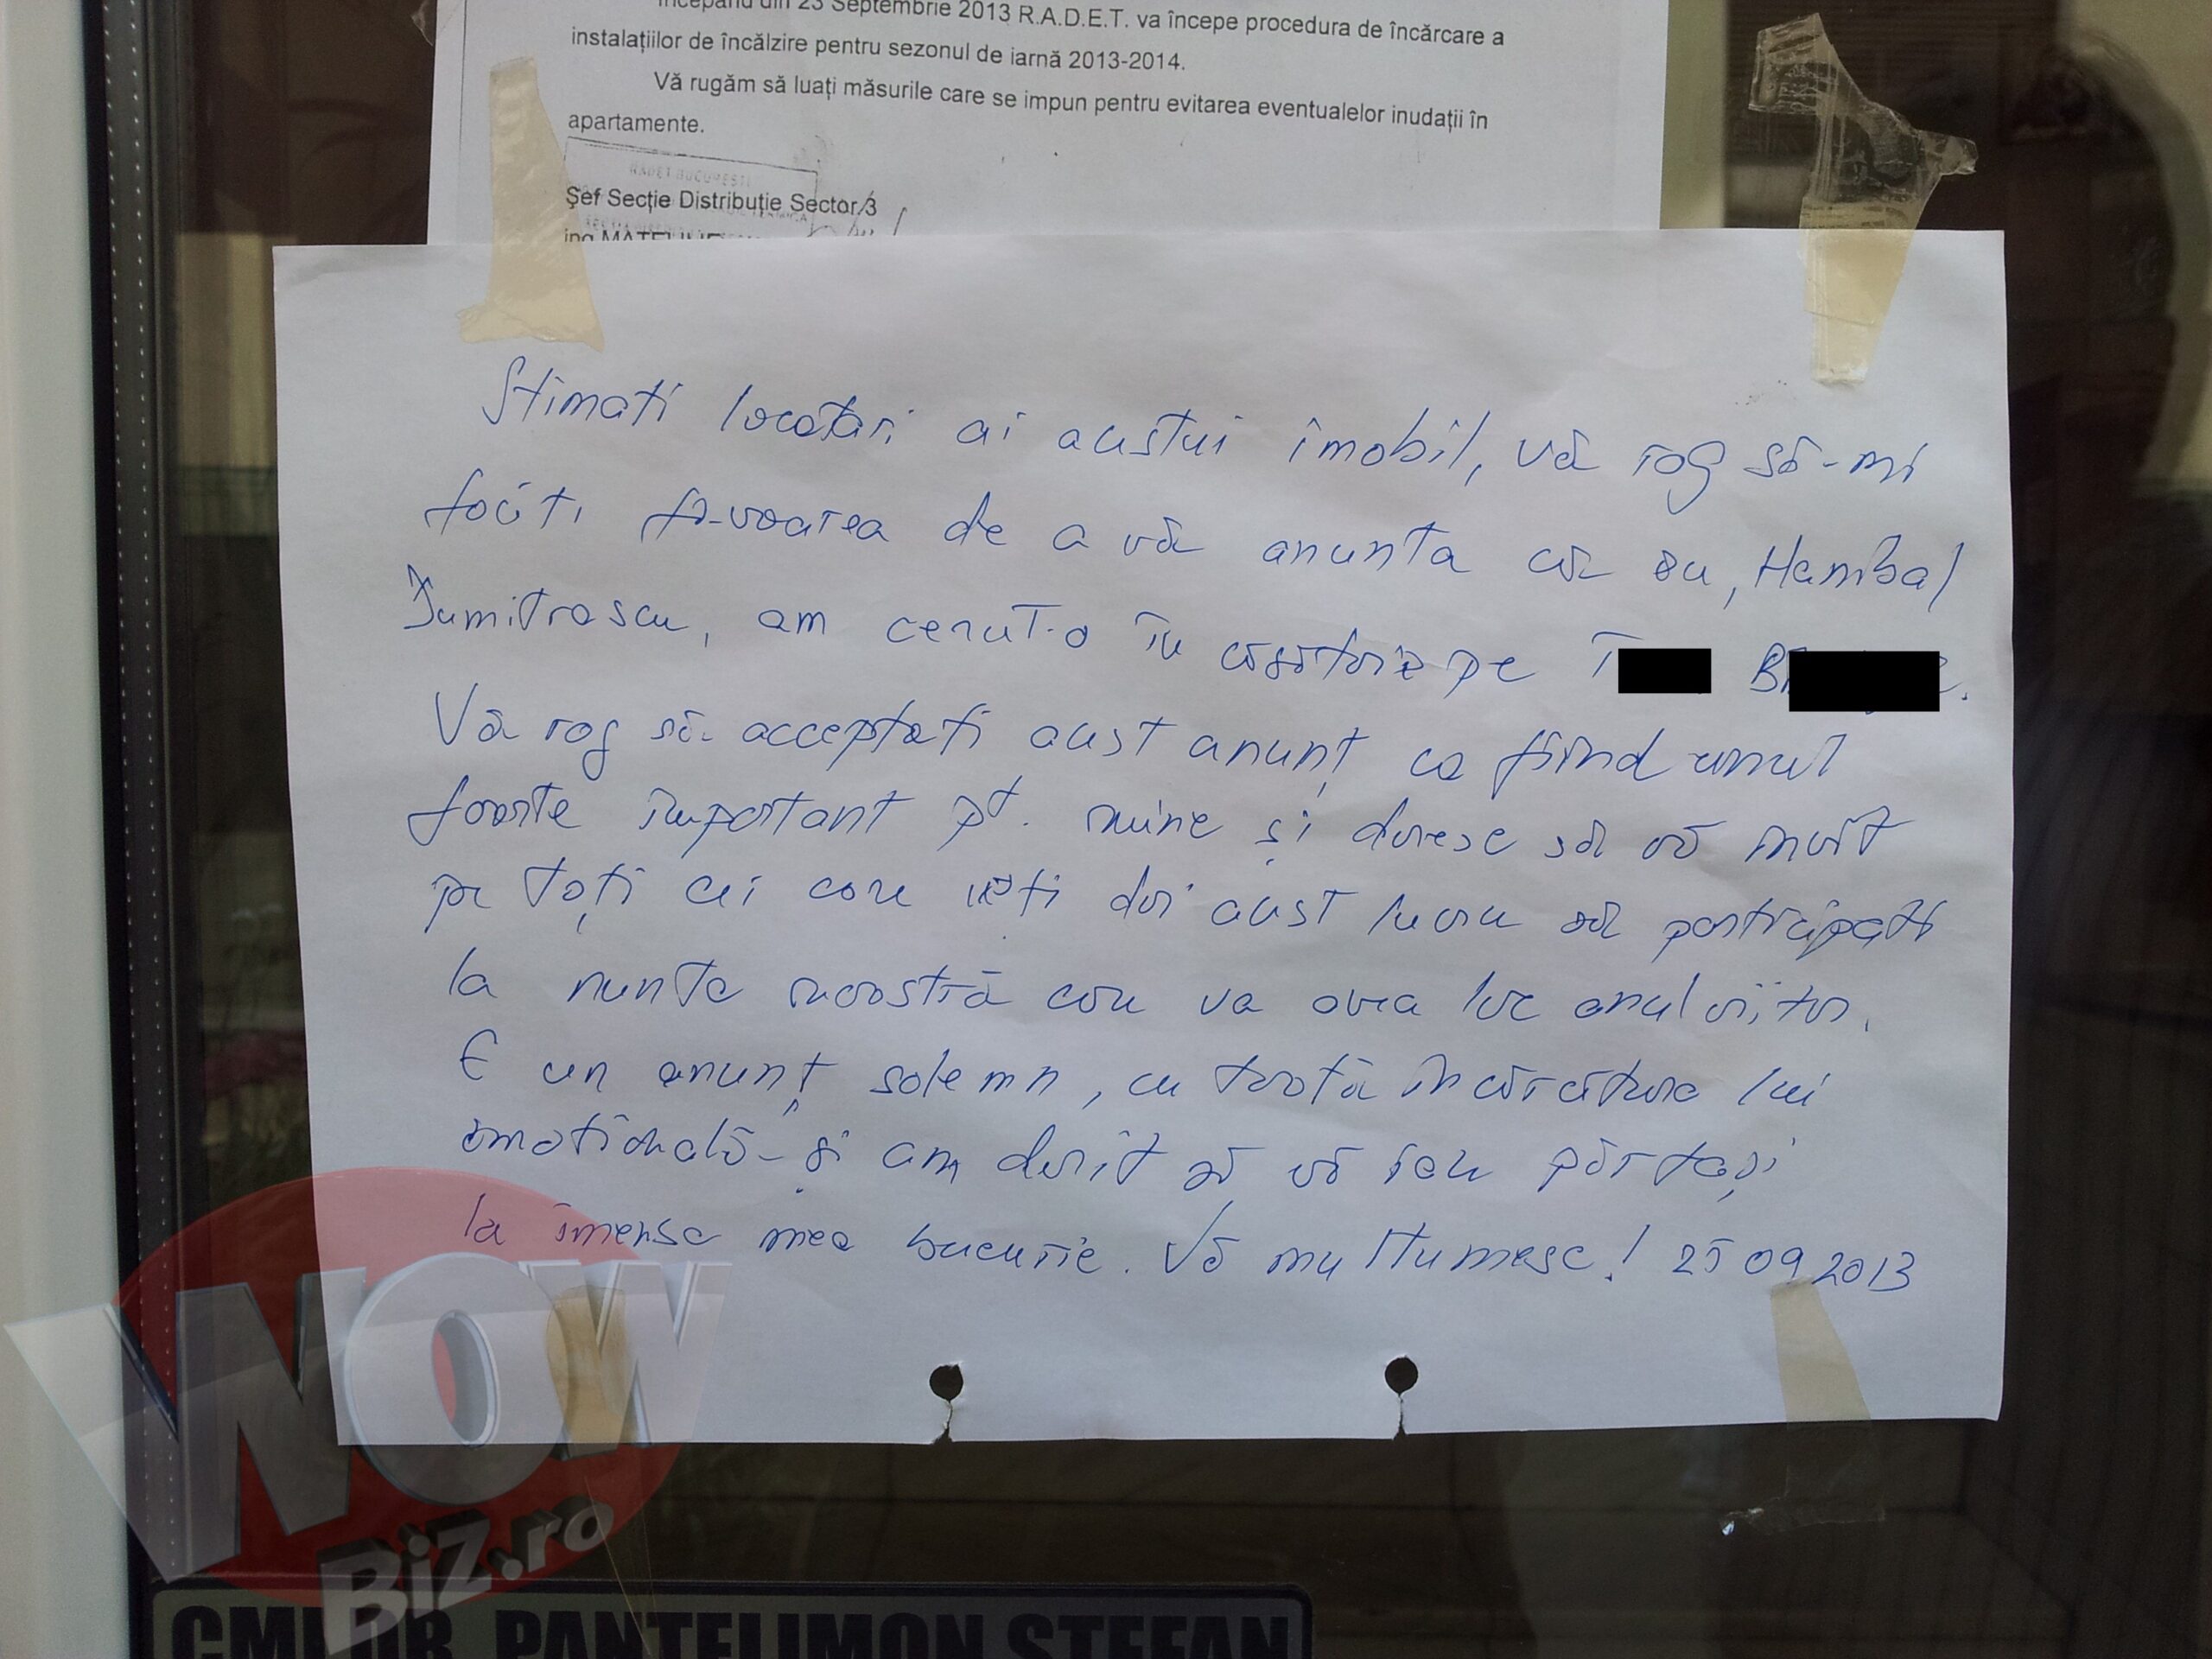 Începând din 23 Septembrie 2013 R.A.D.E.T. va începe procedura de încărcare a
instalațiilor de încălzire pentru sezonul de iarnă 2013-2014.
Vă rugăm să luați măsurile care se impun pentru evitarea eventualelor inudații în
apartamente.
RADET BUCUREȘTI
Şef Secție Distribuție Sector 3
Stimati locatari ai acestui imobil, vă rog să-mi
faceti favoarea de a vă anunta că eu, Hanibal
Dumitrascu, am cerut-o în căsătorie pe T B
Vă rog să acceptati acest anunț ca fiind unul
foarte important pt. mine și doresc să vă invit
pe toți cei care veti dori acest lucru să participati
la nunta noastră care va avea loc anul viitor.
E un anunț solemn, cu toată încărcătura lui
emotională - și am dorit să vă fac părtași
la imensa mea bucurie. Vă multumesc! 25 09 2013
WOW
BiZ.ro
PANTELIMON STEFAN